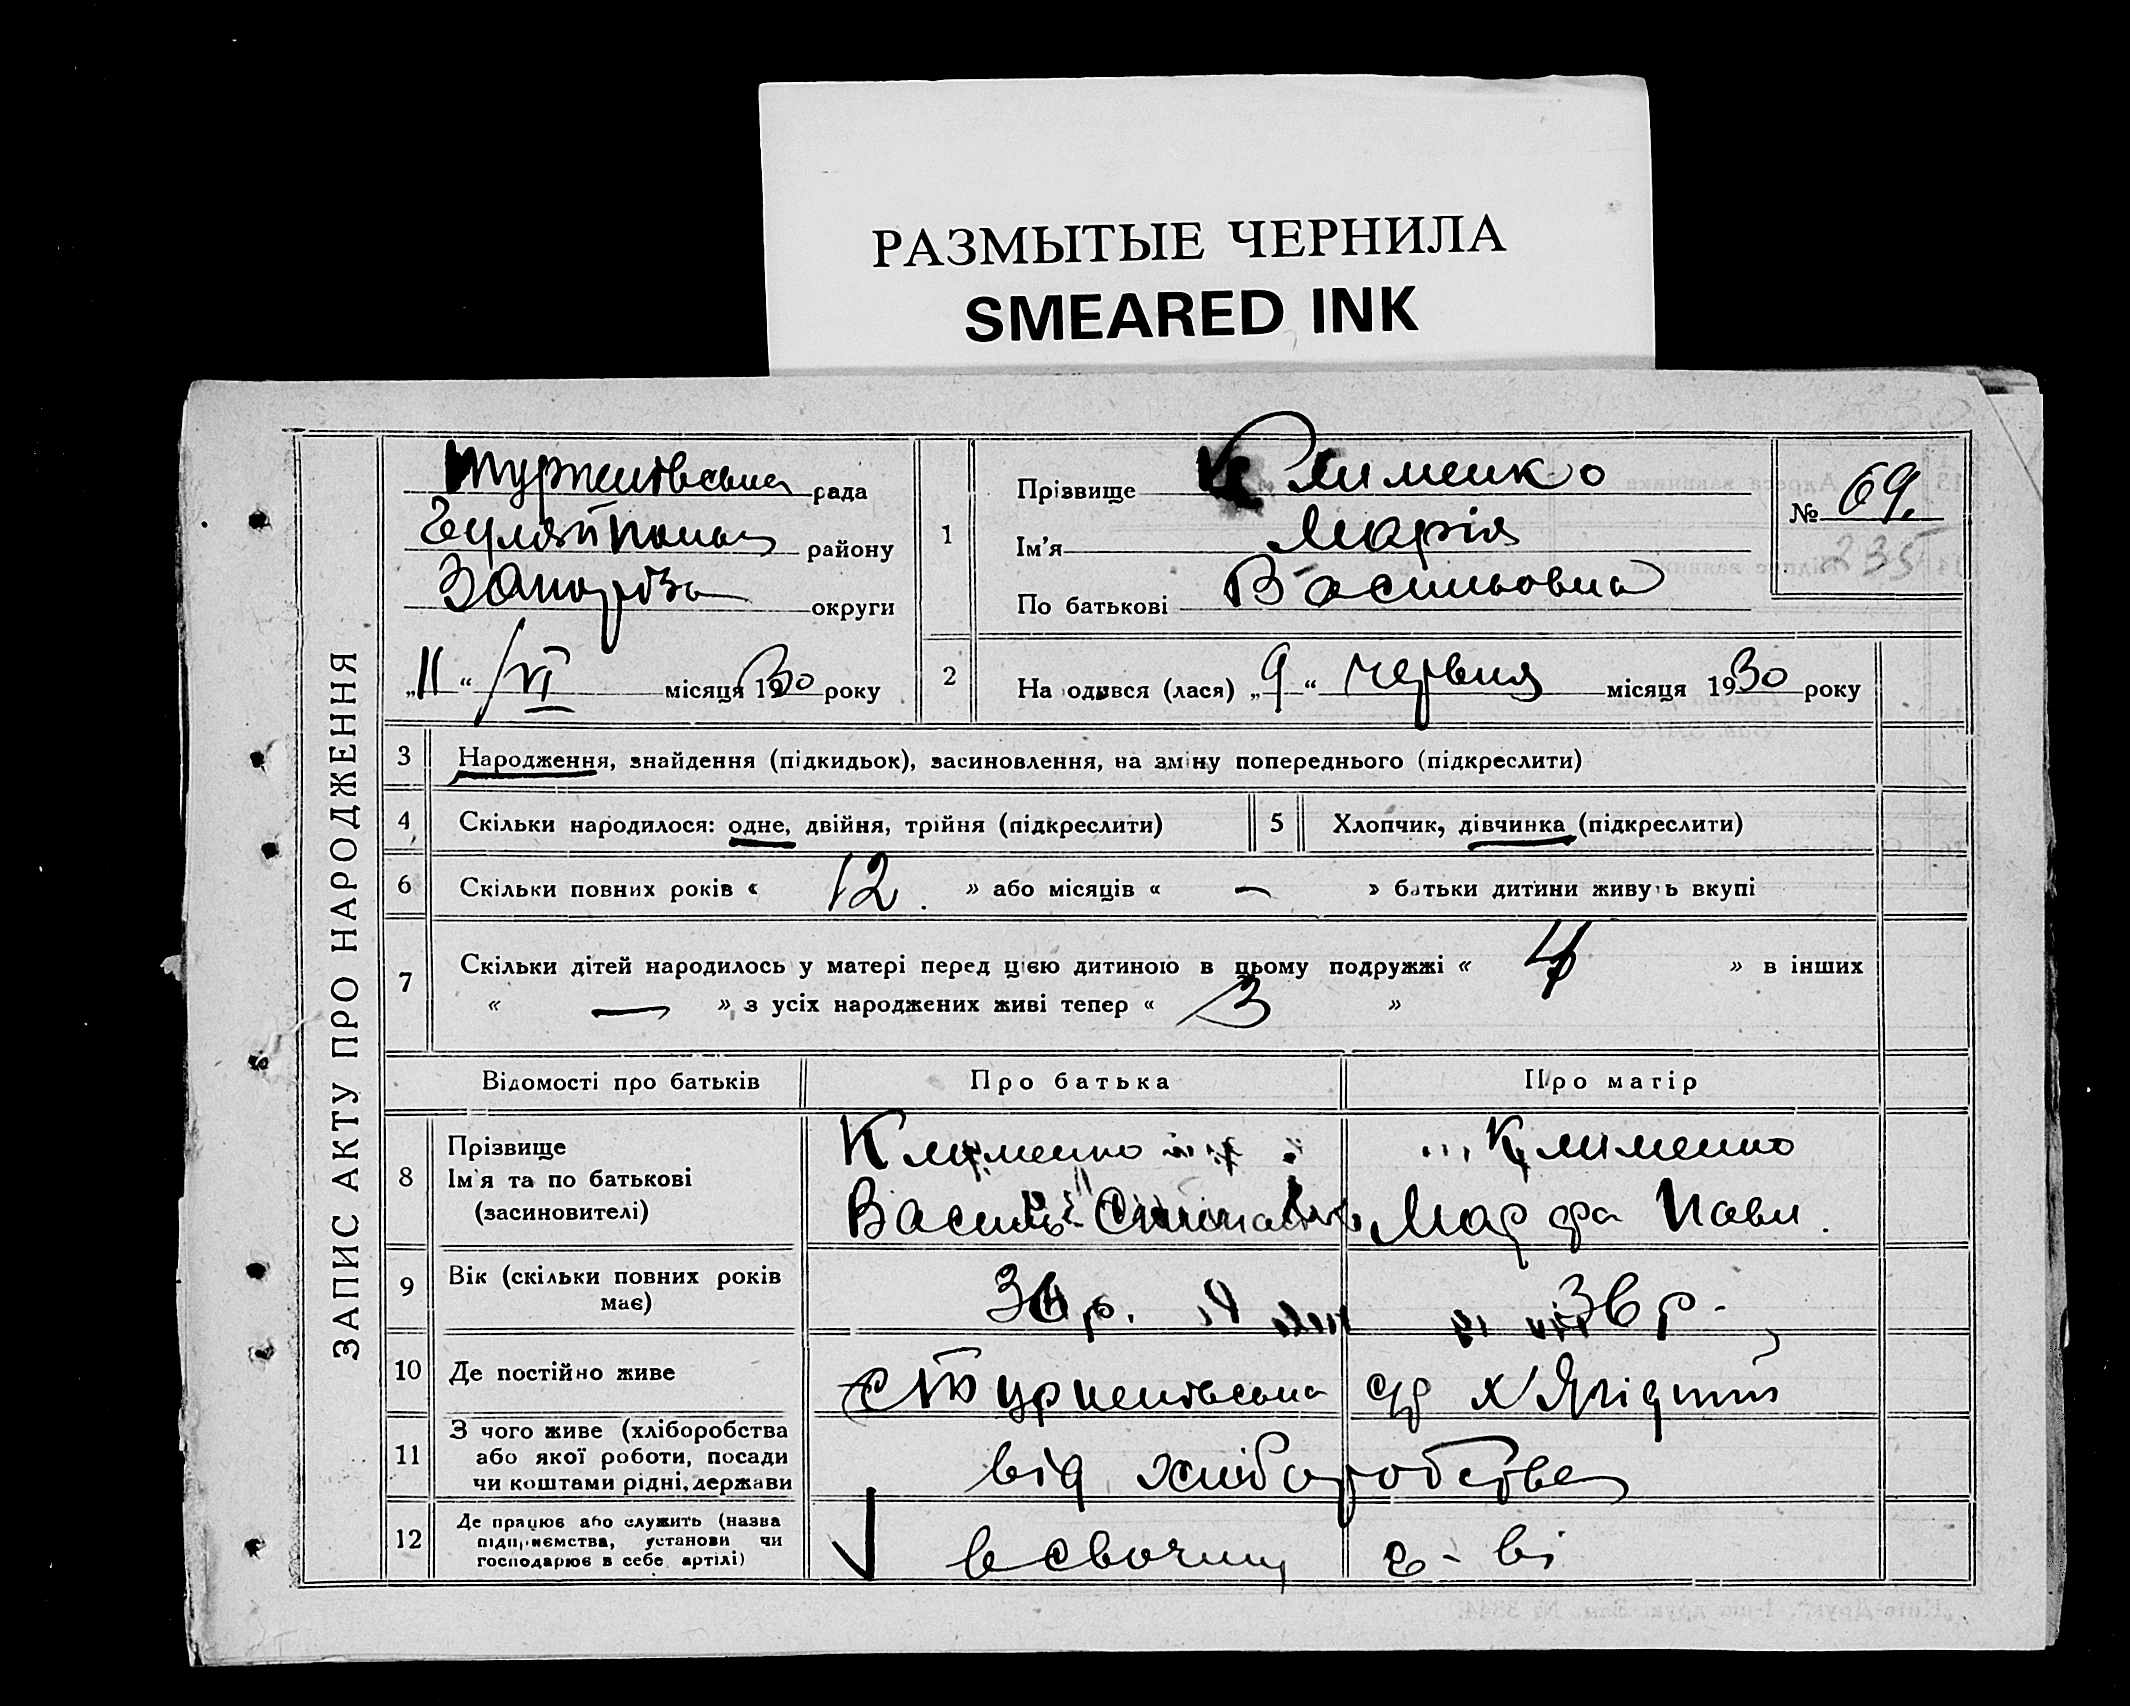 РАЗМЫТЫЕ ЧЕРНИЛА
SMEARED INK
ЗАПИС АКТУ ПРО НАРОДЖЕННЯ
Туркенівська рада
Гуляйпол району
Запоріз округи
„11“ /VI місяця 1930 року
1
Прізвище Клименко
Ім'я Марія
По батькові Васильовна
№ 69.
235
2 Народився (лася) „9“ червня місяця 1930 року
3 Народження, знайдення (підкидьок), засиновлення, на зміну попереднього (підкреслити)
4 Скільки народилося: одне, двійня, трійня (підкреслити)
5 Хлопчик, дівчинка (підкреслити)
6 Скільки повних років « 12. » або місяців « — » батьки дитини живуть вкупі
7 Скільки дітей народилось у матері перед цією дитиною в цьому подружжі « 4 » в інших
« — », з усіх народжених живі тепер « 3 »
Відомості про батьків Про батька Про матір
8 Прізвище
Ім'я та по батькові
(засновителі)
Клименко
Василь
Клименко
Марфа Павл.
9 Вік (скільки повних років
має)
р. 36 р.
10 Де постійно живе
Туркенівська с/р х.
11 З чого живе (хліборобства
або якої роботи, посади
чи коштами рідні, держави
від хліборобства
12 Де працює або служить (назва
підприємства, установи чи
господарює в себе, артілі)
в своєму г-ві